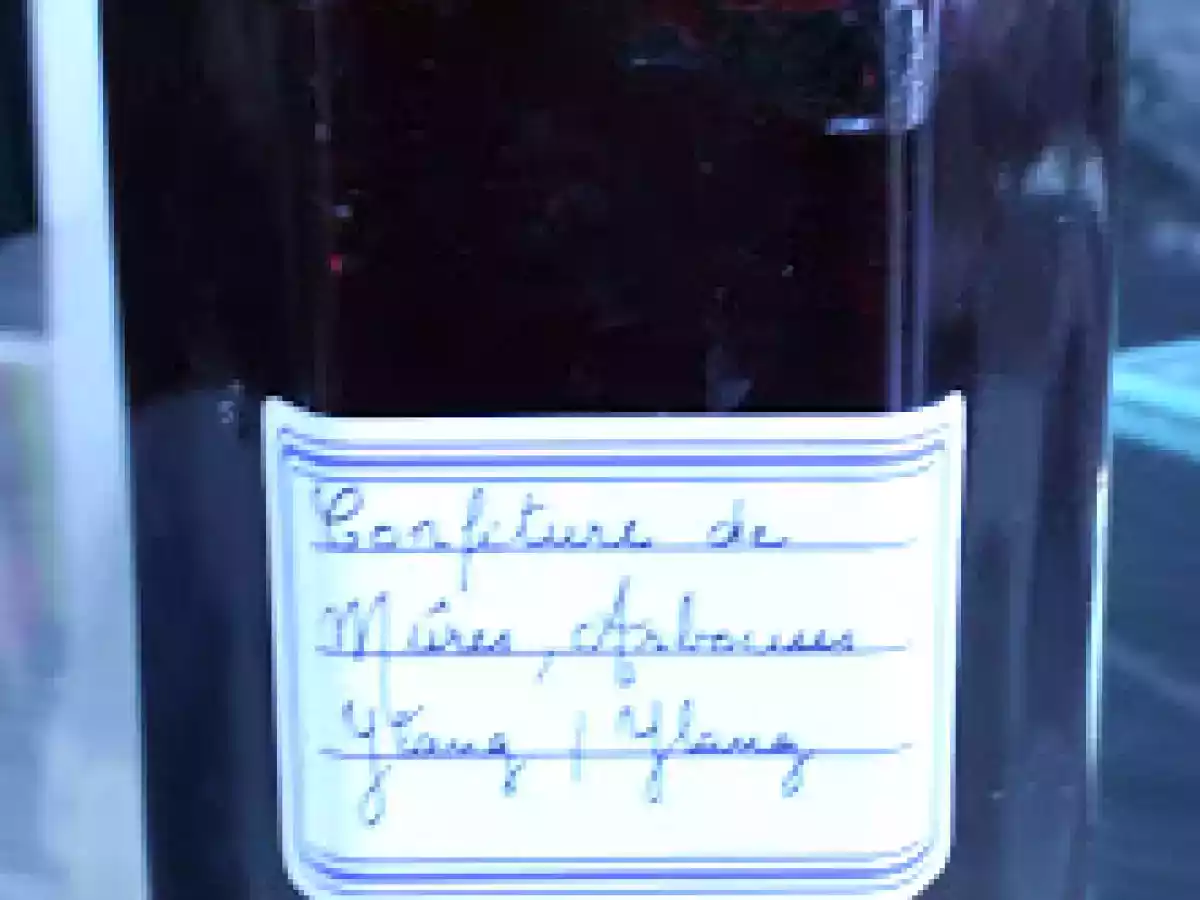 Confiture de
Mûres, Arbouses
Ylang / Ylang